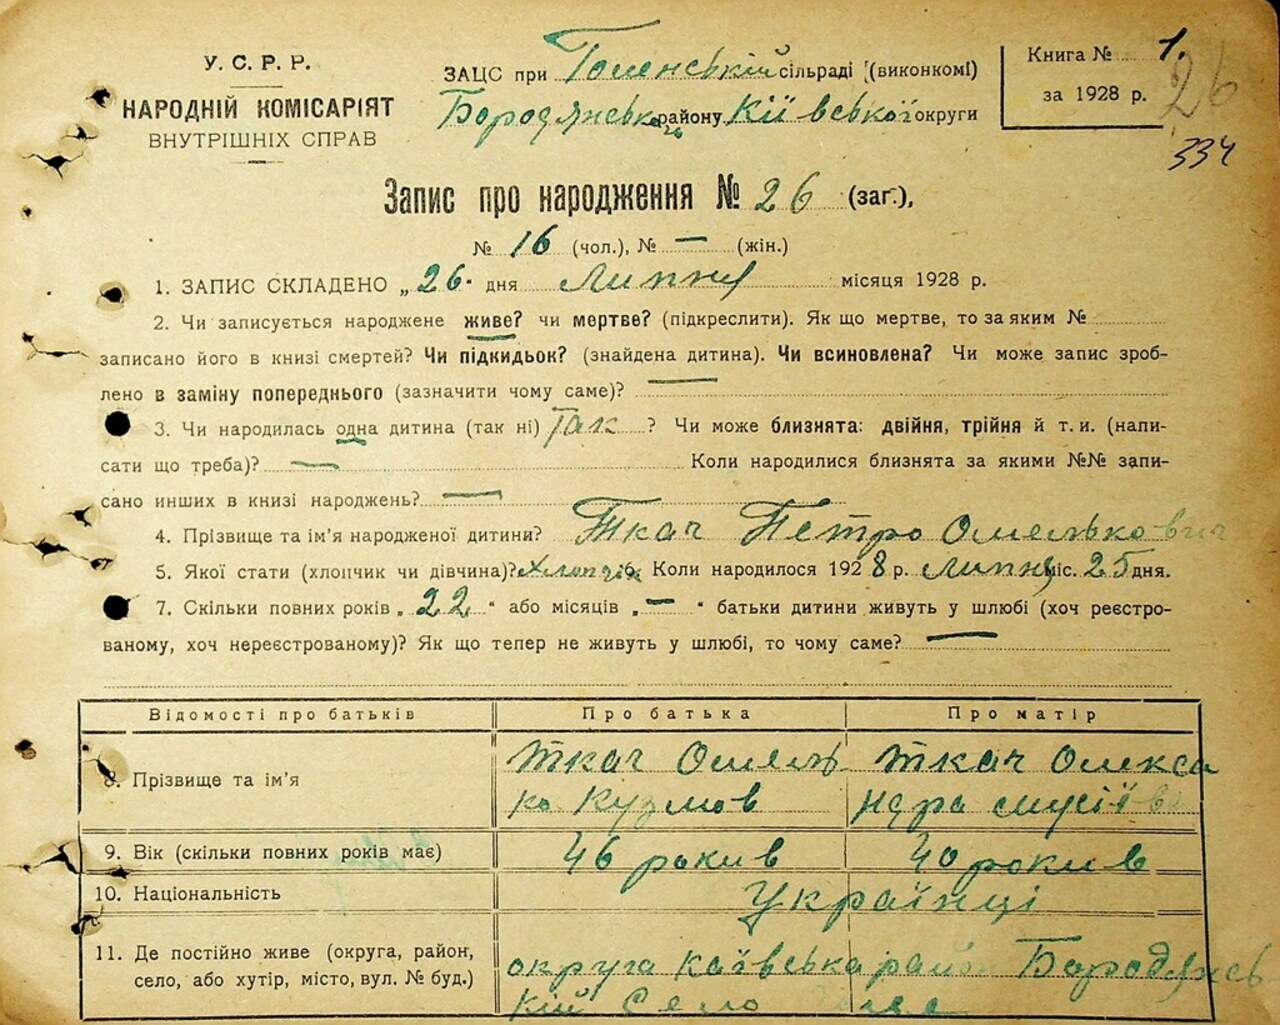 У. С. Р. Р.
НАРОДНІЙ КОМІСАРІЯТ
ВНУТРІШНІХ СПРАВ
ЗАЦС при сільраді (виконкомі)
Бородянсько району Київської округи
Книга № 1.
за 1928 р.
26
334
Запис про народження № 26 (заг.),
№ 16 (чол.), № — (жін.)
1. ЗАПИС СКЛАДЕНО „26" дня Липня місяця 1928 р.
2. Чи записується народжене живе? чи мертве? (підкреслити). Як що мертве, то за яким №
записано його в книзі смертей? Чи підкидьок? (знайдена дитина). Чи всиновлена? Чи може запис зроб-
лено в заміну попереднього (зазначити чому саме)? —
3. Чи народилась одна дитина (так ні) Так ? Чи може близнята: двійня, трійня й т. и. (напи-
сати що треба)? — Коли народилися близнята за якими №№ запи-
сано инших в книзі народжень? —
4. Прізвище та ім'я народженої дитини? Ткач Петро Омелькович
5. Якої стати (хлопчик чи дівчина)? Хлопчік 6. Коли народилося 1928 р. Липня міс. 25 дня.
7. Скільки повних років „22" або місяців „—" батьки дитини живуть у шлюбі (хоч реєстро-
ваному, хоч нереєстрованому)? Як що тепер не живуть у шлюбі, то чому саме? —
Відомості про батьків Про батька Про матір
8. Прізвище та ім'я
Ткач Омель
ко Кузмов
Ткач Олекса
ндра Мусіїв
9. Вік (скільки повних років має) 46 рокив 40 рокив
10. Національність Українці
11. Де постійно живе (округа, район,
село, або хутір, місто, вул. № буд.)
округа Київська район Бородянсь
кій Село